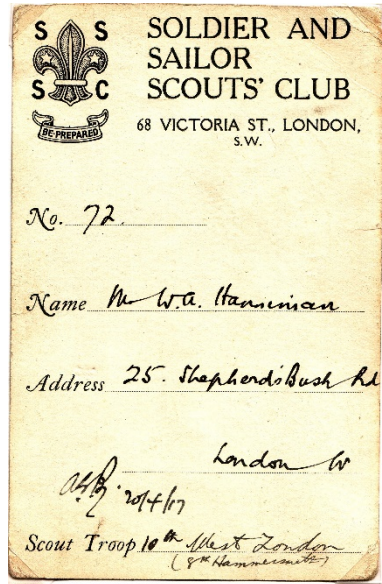 S S
S C
BE PREPARED
SOLDIER AND
SAILOR
SCOUTS' CLUB
68 VICTORIA ST., LONDON,
S.W.
No. 72.
Name Mr W.A.
Address 25. Shepherd's Bush Rd
London W
20/4/17
Scout Troop 10th West London
(8th Hammersmith)